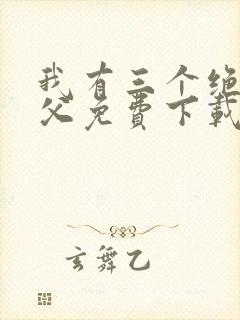 我有三个绝
父免费下载
玄舞乙